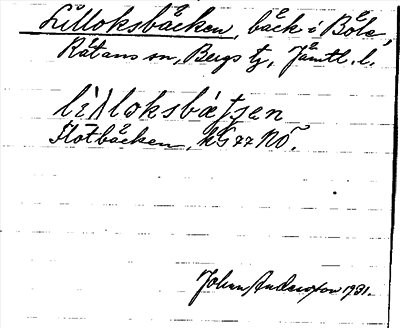 Lilloksbäcken, bäck i Böle,
Rätans sn, Bergs tg, Jämtl. l.
lìlloksbäƫʃen
Flötbäcken, kG 77 NÖ.
Johan Andersson 1931.